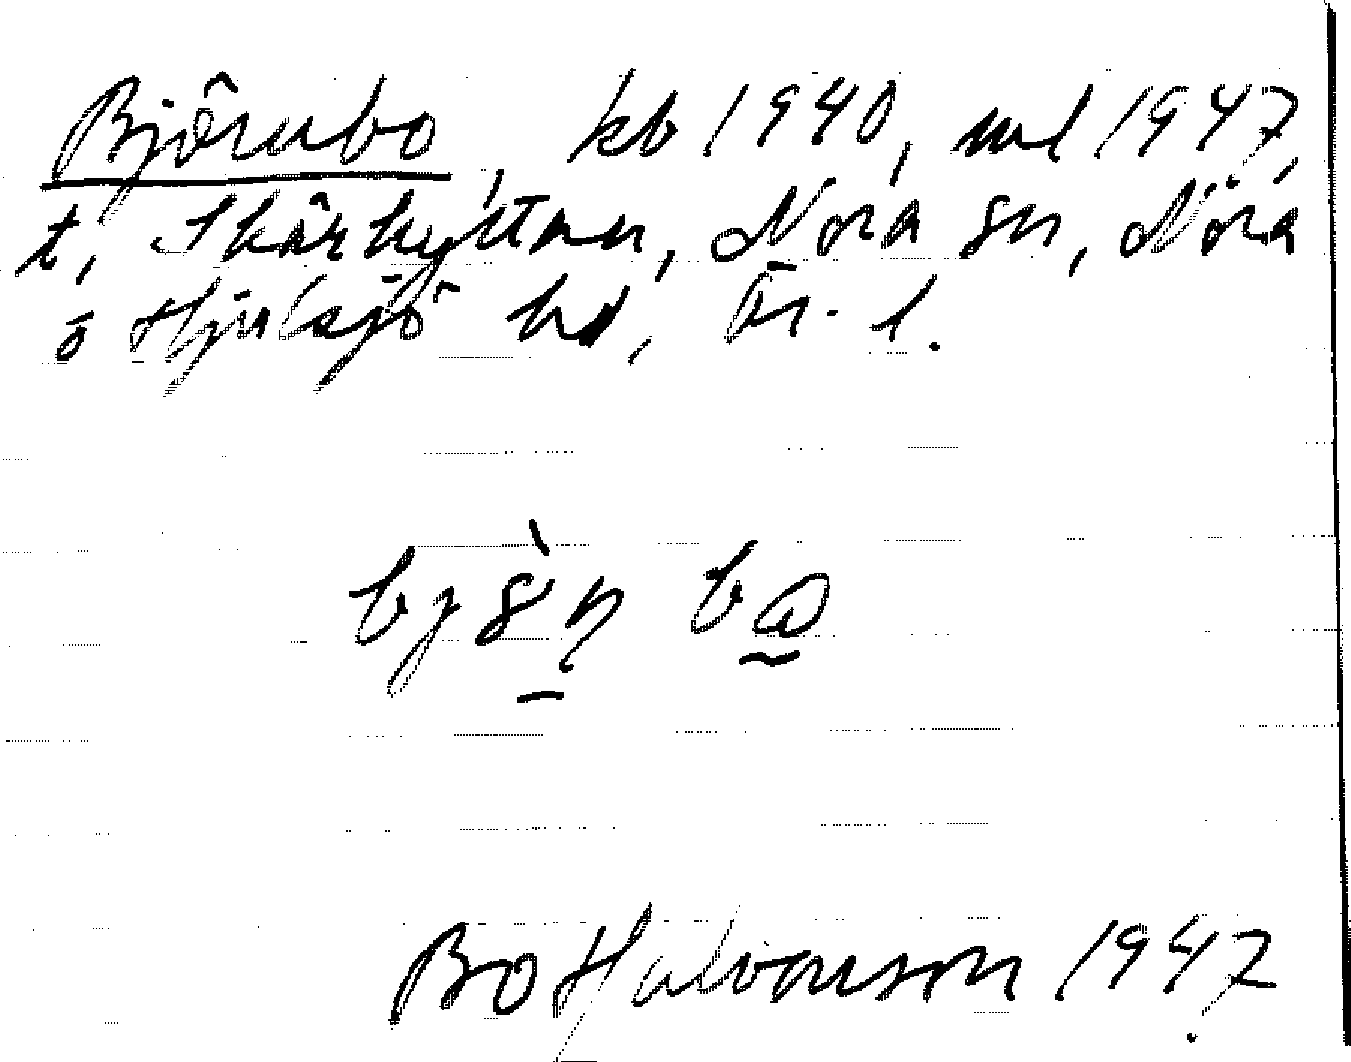 Björnbo, kb 1940, ml 1947,
t, Skärhyttan, Nora sn, Nora
o Hjulsjö hd, Ör. l.
Bo Halvarson 1947